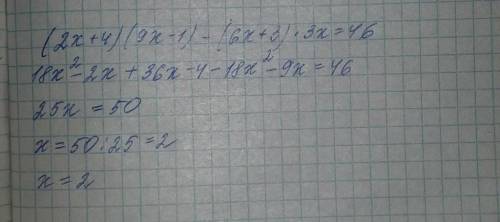 (2x+4)(9x-1)-(6x+3)·3x=46
18x²-2x+36x-4-18x²-9x=46
25x=50
x=50:25=2
x=2